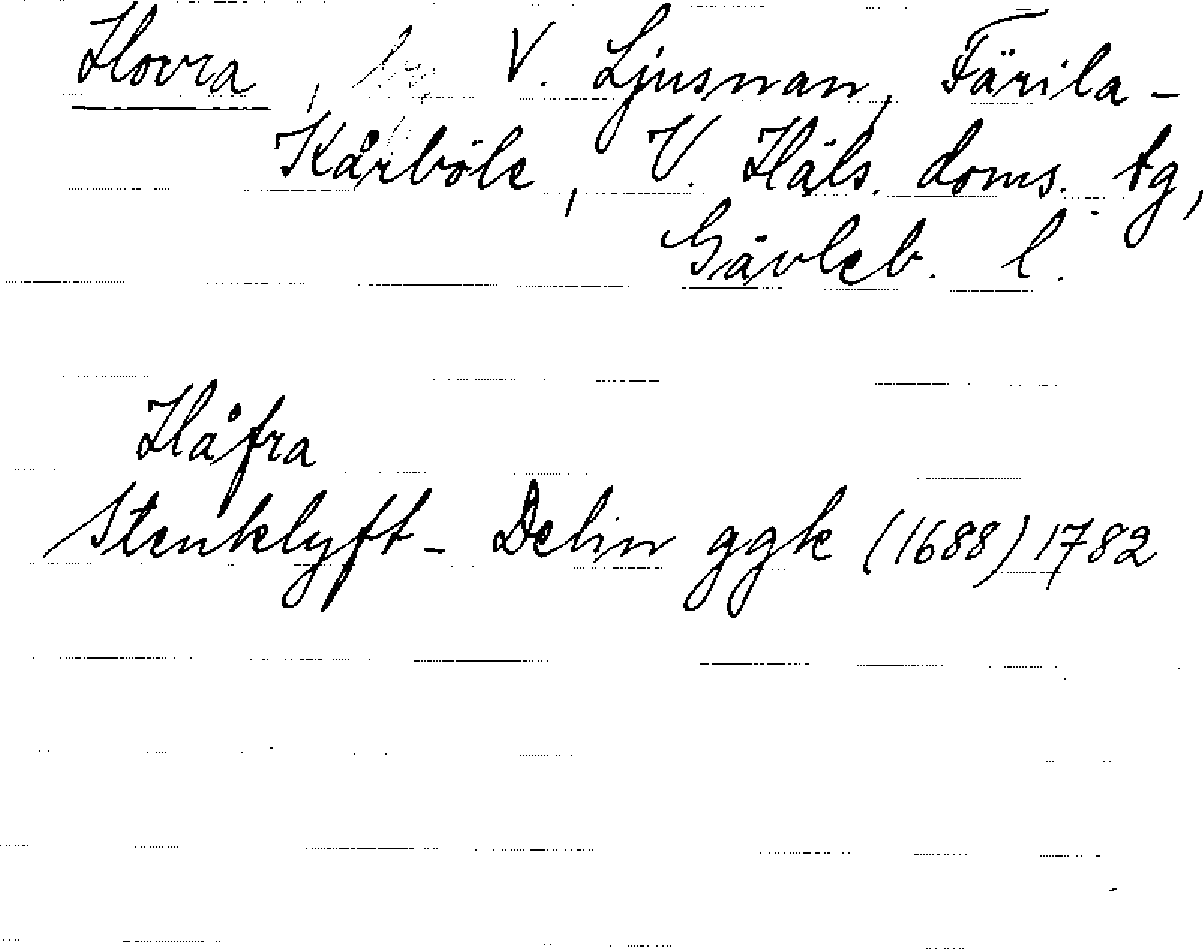 Hovra, by, V. Ljusnan, Färila-
Kårböle, V. Häls. doms. tg,
Gävleb. l.
Håfra
Stenklyft- Delin ggk (1688) 1782